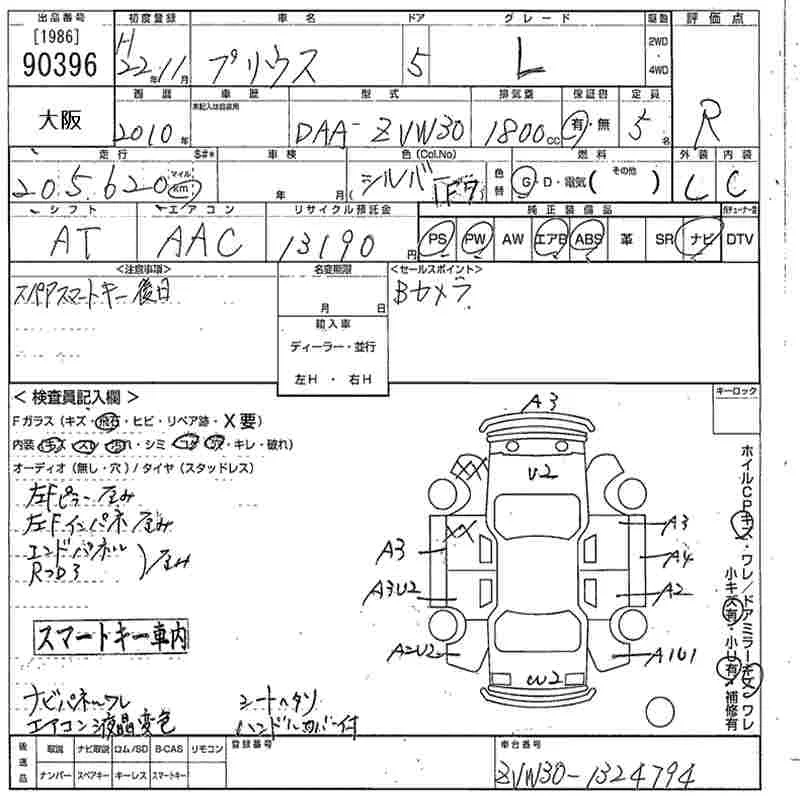 出品番号 初度登録 車名 ドア グレード 駆動 評価点
[1986]
90396
H
22年11月 プリウス 5 L 2WD・4WD
大阪
西暦 車歴 型式 排気量 保証書 定員
未記入は自家用
2010年 DAA-ZVW30 1800cc 有・無 5名 R
走行 S#* 車検 色(Col.No) 色替 燃料 外装 内装
205,620 マイル km 年 月 シルバー G・D・電気( その他 ) C
シフト エアコン リサイクル預託金 純正装備品
AT AAC 13190円 PS PW AW エアB ABS 革 SR ナビ DTV
<注意事項> 名変期限 <セールスポイント>
スペアスマートキー後日 月 日 Bカメラ
輸入車
ディーラー・並行
左H・右H
<検査員記入欄> キーロック
Fガラス(キズ・飛石・ヒビ・リペア跡・X要)
内装(キズ・スレ・汚れ・シミ・コゲ・穴・キレ・破れ)
オーディオ(無し・穴)/タイヤ(スタッドレス)
左Fピラー歪み
左Fインパネ歪み
エンドパネル
Rフロア )歪み
スマートキー車内
ナビパネルワレ シートヘタリ
エアコン液晶変色 ハンドルカバー付
A3
U2
XX
XX
A3 A3
A4
A3U2 A2
A2U2 A1U1
W2
ホイルCPキズ・ワレ/ドアミラーキズ・ワレ
小キズ有・小U有・補修有
後送品 取説 ナビ取説 ロム/SD B-CAS リモコン 登録番号 車台番号
ナンバー スペアキー キーレス スマートキー ZVW30-1324794